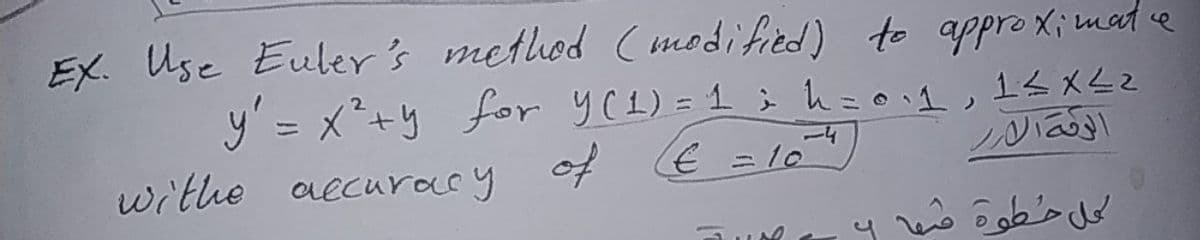 EX. Use Euler's method (modified) to approximate
y' = x²+y for y(1) = 1 ; h = 0.1 , 1 ≤ x ≤ 2
withe accuracy of є = 10⁻⁴
كل خطوة